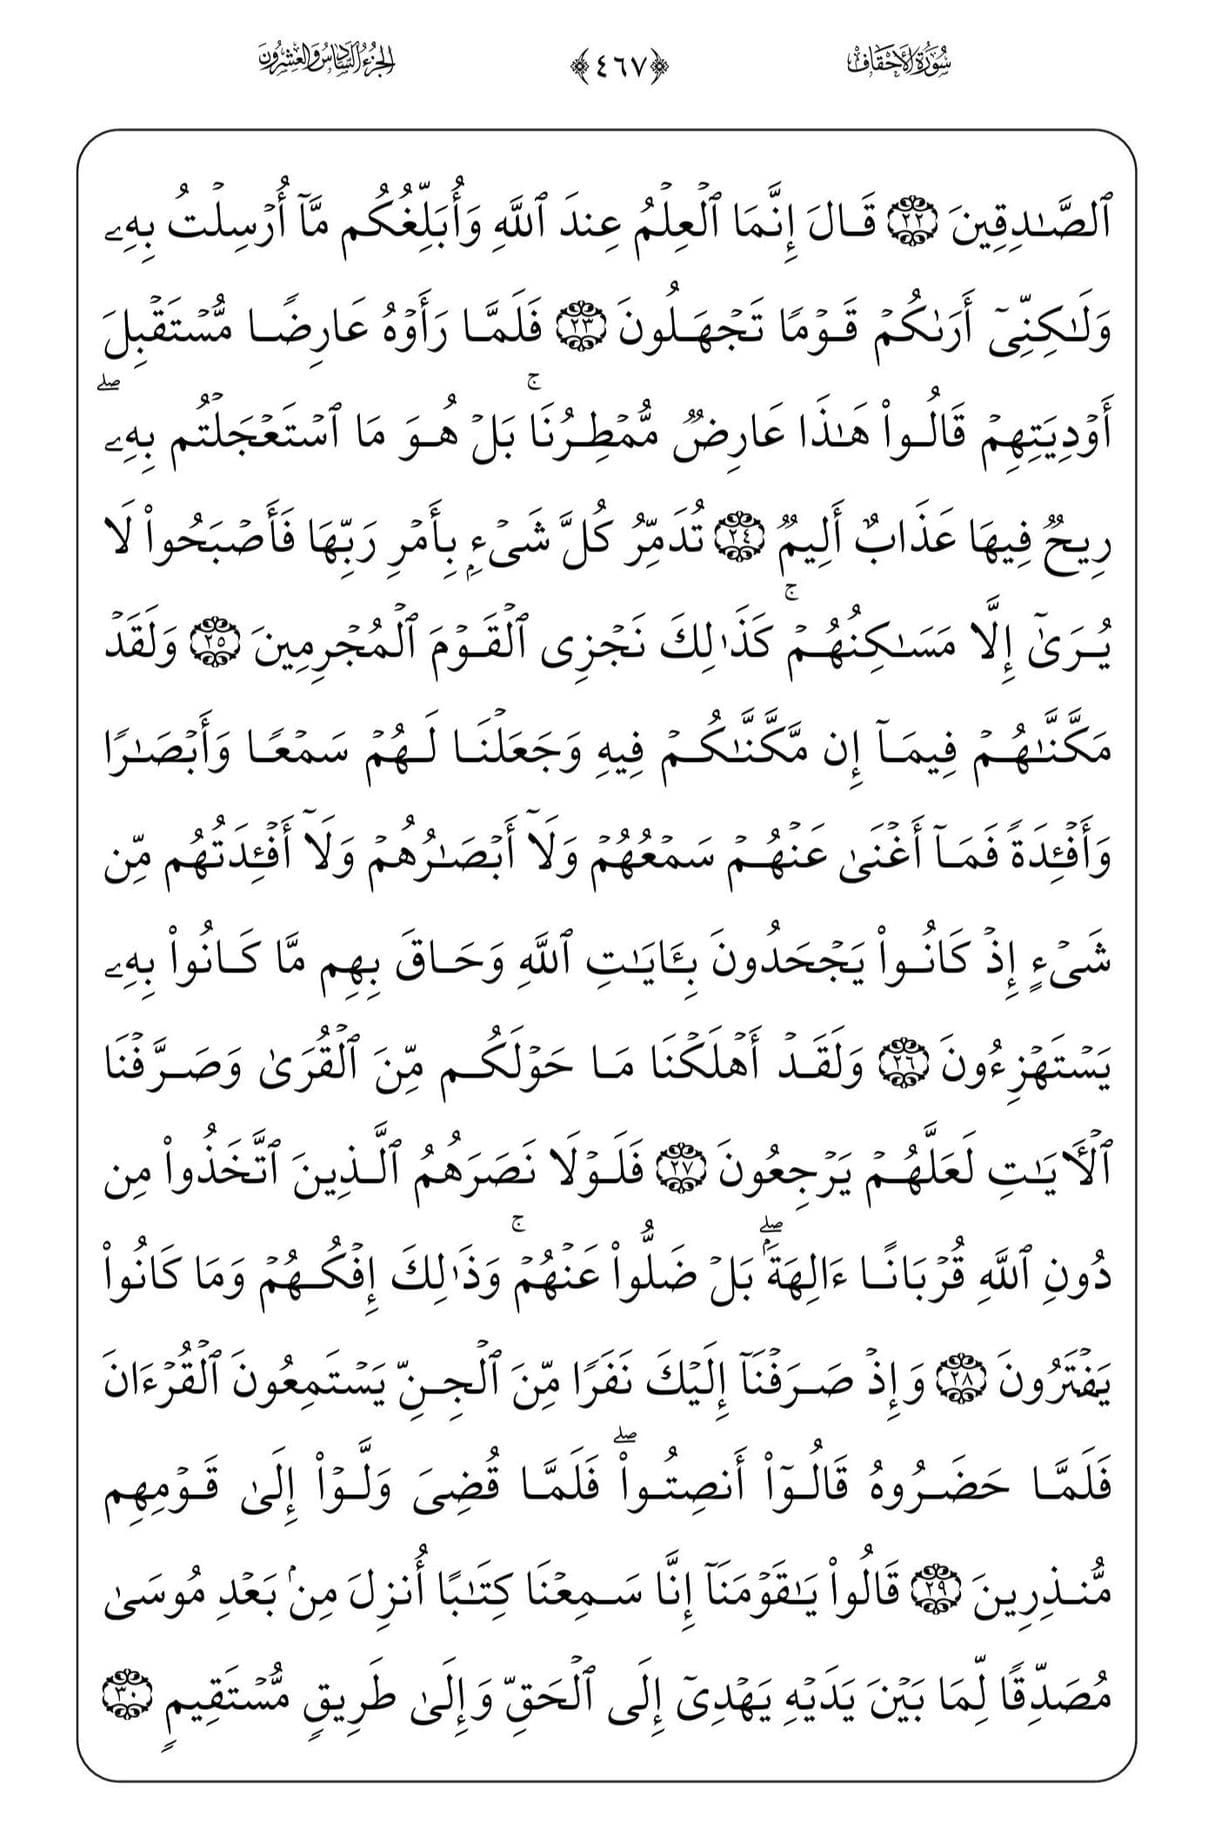 سُورَةُ الأَحْقَافِ ﴿٤٦٧﴾ الجُزْءُ السَّادِسُ وَالعِشْرُونَ
ٱلصَّـٰدِقِينَ ٢٢ قَالَ إِنَّمَا ٱلۡعِلۡمُ عِندَ ٱللَّهِ وَأُبَلِّغُكُم مَّآ أُرۡسِلۡتُ بِهِۦ
وَلَـٰكِنِّىٓ أَرَىٰكُمۡ قَوۡمًا تَجۡهَلُونَ ٢٣ فَلَمَّا رَأَوۡهُ عَارِضًا مُّسۡتَقۡبِلَ
أَوۡدِيَتِهِمۡ قَالُوا۟ هَـٰذَا عَارِضٌ مُّمۡطِرُنَاۚ بَلۡ هُوَ مَا ٱسۡتَعۡجَلۡتُم بِهِۦۖ
رِيحٌ فِيهَا عَذَابٌ أَلِيمٌ ٢٤ تُدَمِّرُ كُلَّ شَىۡءِۭ بِأَمۡرِ رَبِّهَا فَأَصۡبَحُوا۟ لَا
يُرَىٰٓ إِلَّا مَسَـٰكِنُهُمۡۚ كَذَٰلِكَ نَجۡزِى ٱلۡقَوۡمَ ٱلۡمُجۡرِمِينَ ٢٥ وَلَقَدۡ
مَكَّنَّـٰهُمۡ فِيمَآ إِن مَّكَّنَّـٰكُمۡ فِيهِ وَجَعَلۡنَا لَهُمۡ سَمۡعًا وَأَبۡصَـٰرًا
وَأَفۡـِٔدَةً فَمَآ أَغۡنَىٰ عَنۡهُمۡ سَمۡعُهُمۡ وَلَآ أَبۡصَـٰرُهُمۡ وَلَآ أَفۡـِٔدَتُهُم مِّن
شَىۡءٍ إِذۡ كَانُوا۟ يَجۡحَدُونَ بِـَٔايَـٰتِ ٱللَّهِ وَحَاقَ بِهِم مَّا كَانُوا۟ بِهِۦ
يَسۡتَهۡزِءُونَ ٢٦ وَلَقَدۡ أَهۡلَكۡنَا مَا حَوۡلَكُم مِّنَ ٱلۡقُرَىٰ وَصَرَّفۡنَا
ٱلۡـَٔايَـٰتِ لَعَلَّهُمۡ يَرۡجِعُونَ ٢٧ فَلَوۡلَا نَصَرَهُمُ ٱلَّذِينَ ٱتَّخَذُوا۟ مِن
دُونِ ٱللَّهِ قُرۡبَانًا ءَالِهَةَۢۖ بَلۡ ضَلُّوا۟ عَنۡهُمۡۚ وَذَٰلِكَ إِفۡكُهُمۡ وَمَا كَانُوا۟
يَفۡتَرُونَ ٢٨ وَإِذۡ صَرَفۡنَآ إِلَيۡكَ نَفَرًا مِّنَ ٱلۡجِنِّ يَسۡتَمِعُونَ ٱلۡقُرۡءَانَ
فَلَمَّا حَضَرُوهُ قَالُوٓا۟ أَنصِتُوا۟ۖ فَلَمَّا قُضِىَ وَلَّوۡا۟ إِلَىٰ قَوۡمِهِم
مُّنذِرِينَ ٢٩ قَالُوا۟ يَـٰقَوۡمَنَآ إِنَّا سَمِعۡنَا كِتَـٰبًا أُنزِلَ مِنۢ بَعۡدِ مُوسَىٰ
مُصَدِّقًا لِّمَا بَيۡنَ يَدَيۡهِ يَهۡدِىٓ إِلَى ٱلۡحَقِّ وَإِلَىٰ طَرِيقٍ مُّسۡتَقِيمٍ ٣٠